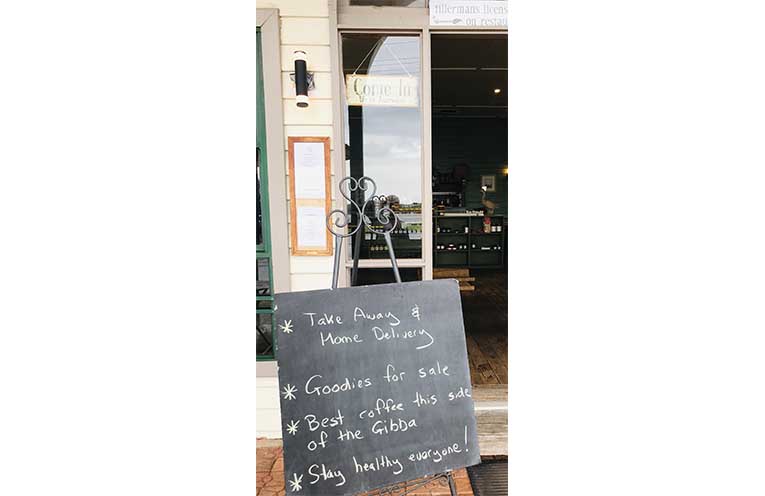 tillermans licens
on resta
Come In
* Take Away &
Home Delivery
* Goodies for sale
* Best coffee this side
of the Gibba
* Stay healthy everyone!